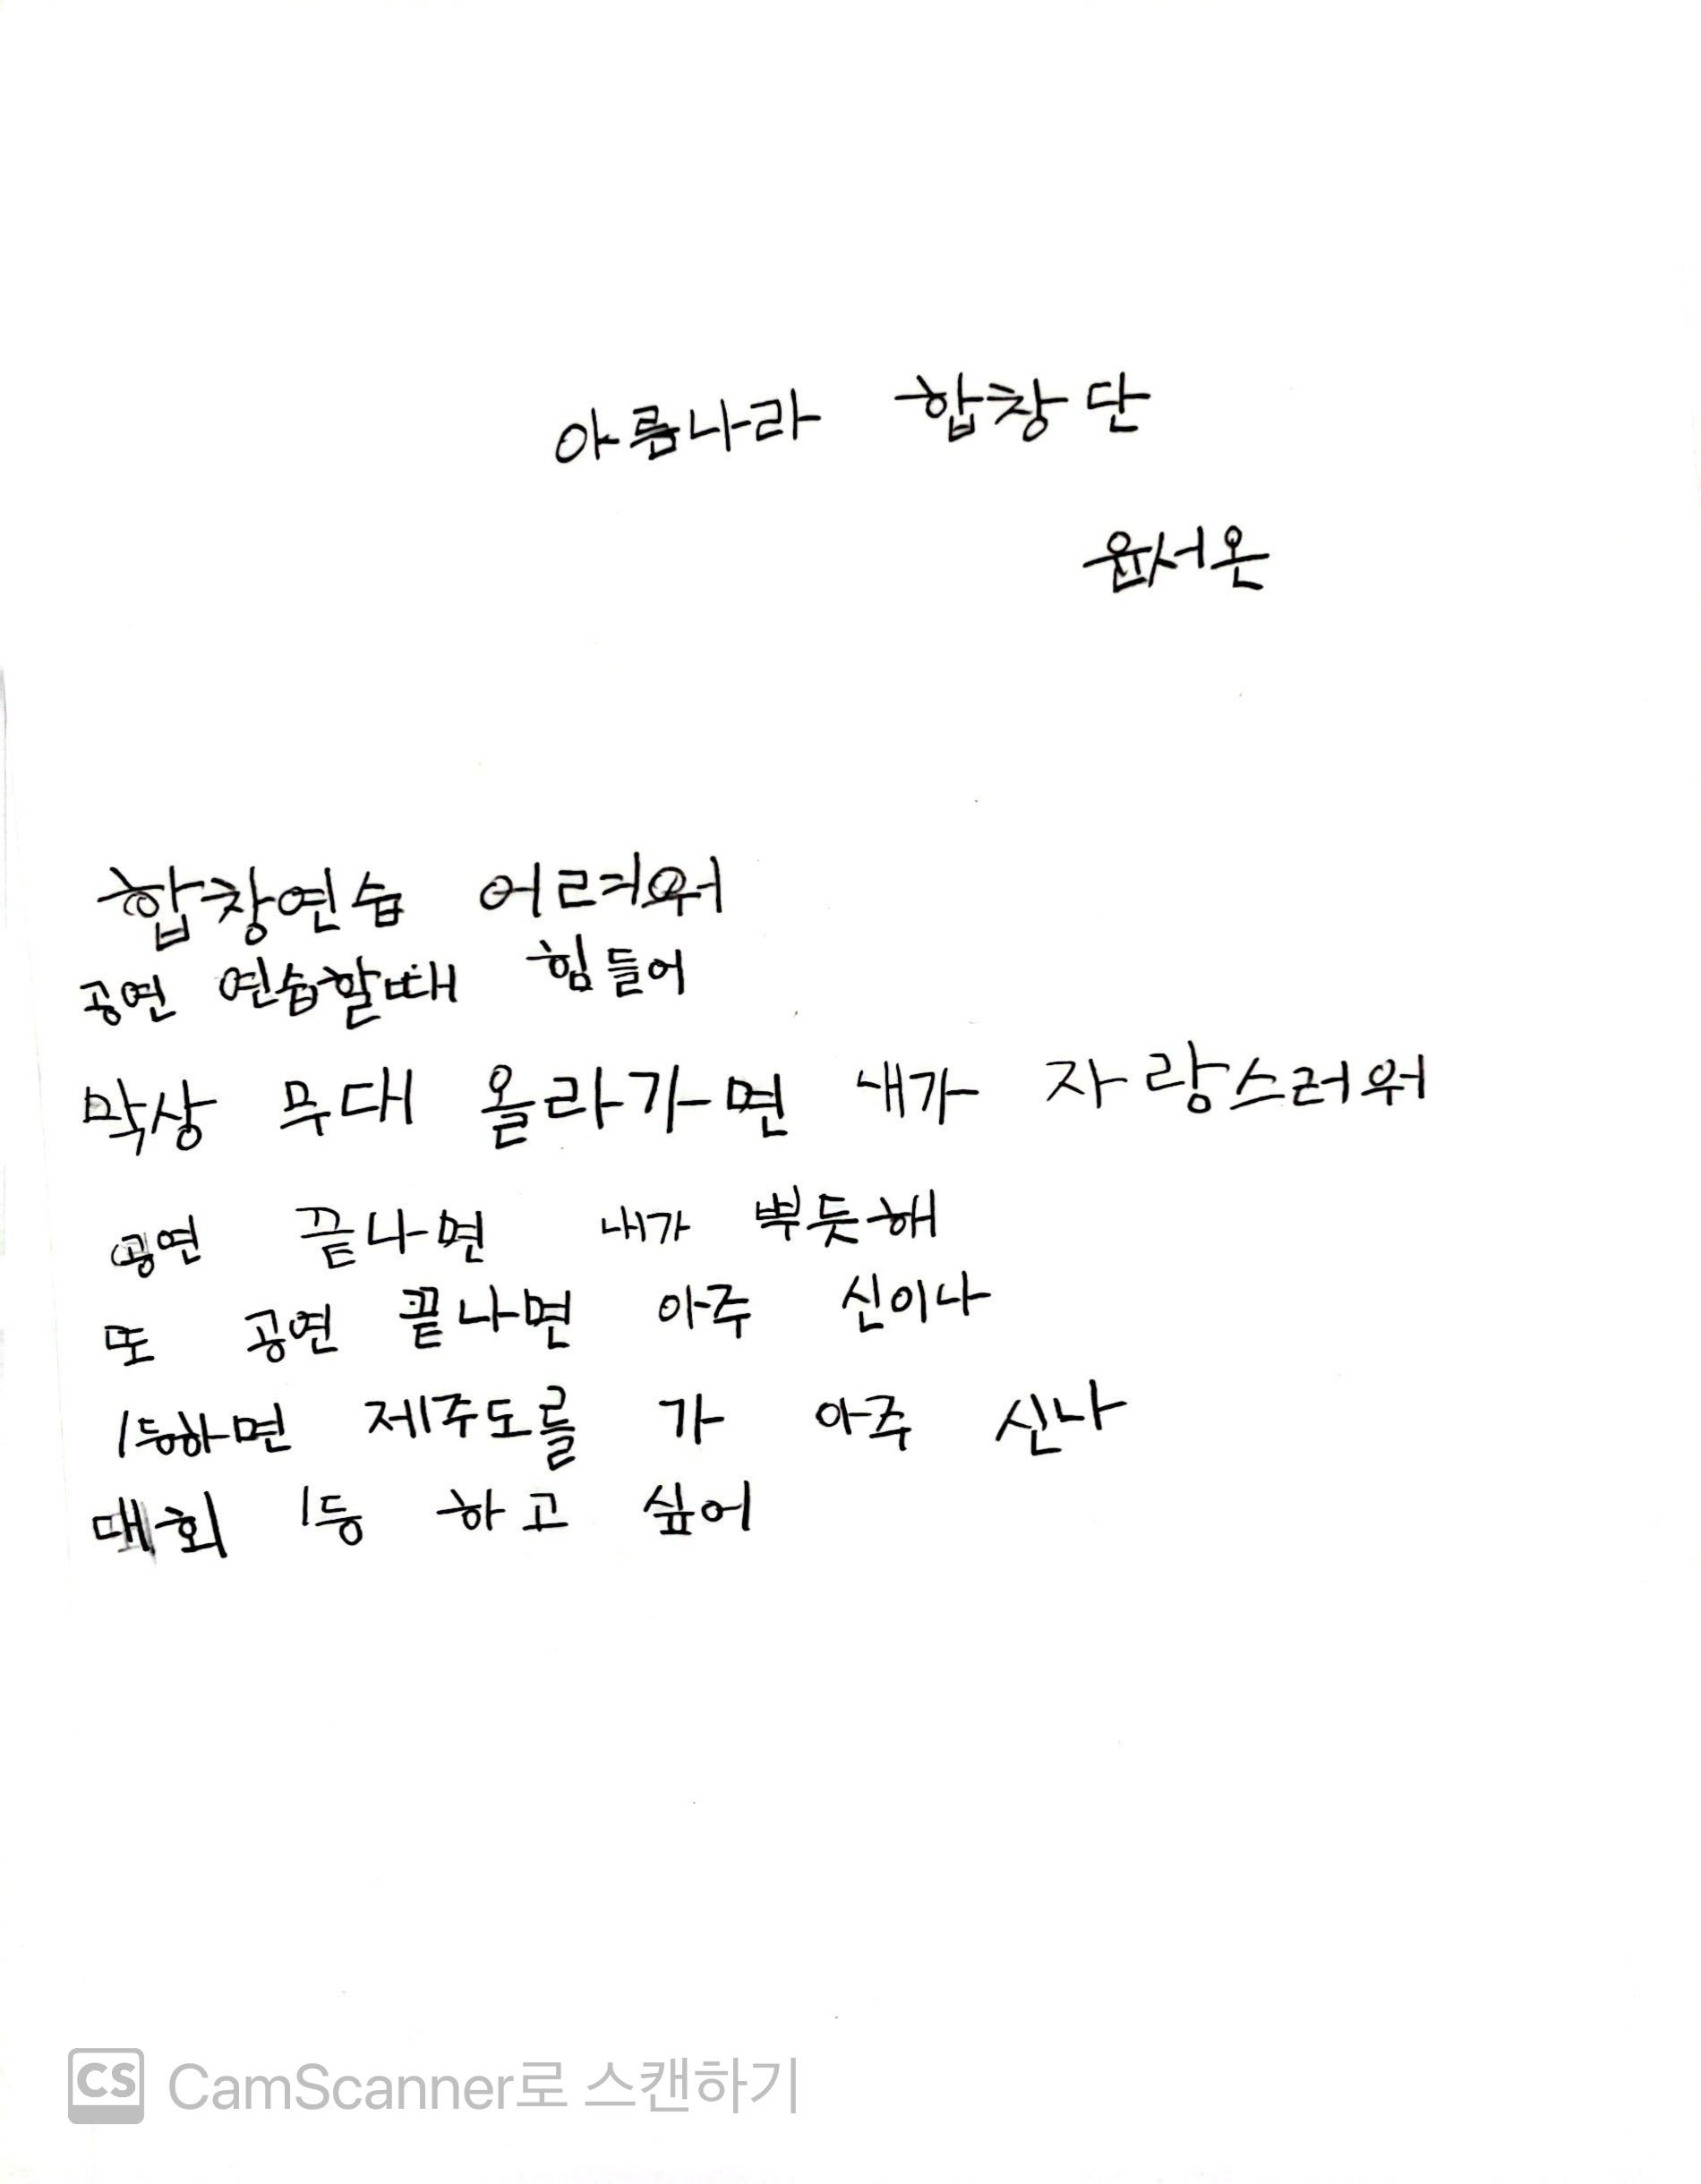 아름나라 합창단
윤서온
합창연습 어려워
공연 연습할때 힘들어
막상 무대 올라가면 내가 자랑스러워
공연 끝나면 내가 뿌듯해
또 공연 끝나면 아주 신이나
1등하면 제주도를 가 아주 신나
대회 1등 하고 싶어
CS CamScanner로 스캔하기